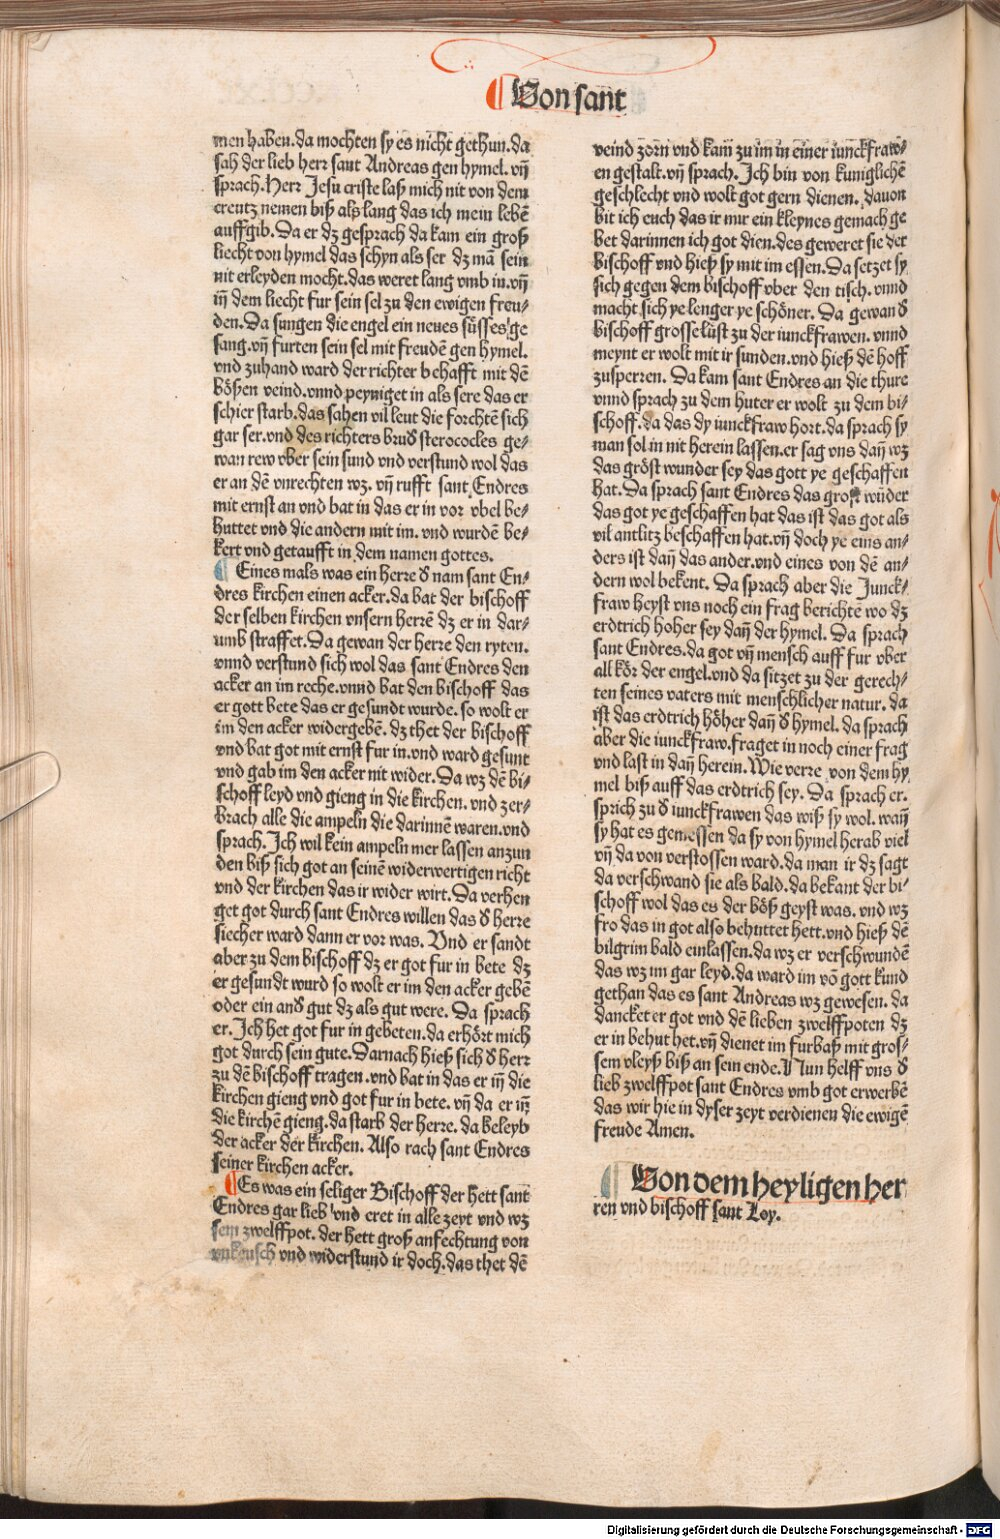 ¶ Von sant
men haben.da mochten sy es nicht gethun.da
sah der lieb herr sant Andreas gen hymel. vñ
sprach. Herr Jesu criste laß mich nit von dem
creutz nemen biß als lang das ich mein lebẽ
auffgib. Da er dz gesprach da kam ein groß
liecht von hymel das schyn als ser dz mã sein
nit erleyden mocht.das weret lang vmb in.vñ
in̄ dem liecht fur sein sel zu den ewigen freu⸗
den. Da sungen die engel ein neues süsses ge
sang.vñ furten sein sel mit freudẽ gen hymel.
vnd zuhand ward der richter behafft mit dẽ
bößen veind.vnnd peyniget in als sere das er
schier starb.das sahen vil leut die forchtẽ sich
gar ser.vnd des richters brud sterococles ge⸗
wan rew vber sein sund vnd verstund wol das
er an dẽ vnrechten wz. vñ rufft sant Endres
mit ernst an vnd bat in das er in vor vbel be⸗
huttet vnd die andern mit im. vnd wurdẽ be⸗
kert vnd getaufft in dem namen gottes.
¶ Eines mals was ein herre d̕ nam sant En⸗
dres kirchen einen acker.da bat der bischoff
der selben kirchen vnsern herrẽ dz er in dar⸗
umb straffet. Da gewan der herre den ryten.
vnnd verstund sich wol das sant Endres den
acker an im reche.vnnd bat den bischoff das
er gott bete das er gesundt wurde. so wolt er
im den acker widergebẽ. dz thet der bischoff
vnd bat got mit ernst fur in.vnd ward gesunt
vnd gab im den acker nit wider. Da wz dẽ bi⸗
schoff leyd vnd gieng in die kirchen. vnd zer⸗
brach alle die ampeln die darinnẽ waren.vnd
sprach. Ich wil kein ampeln mer lassen anzun
den biß sich got an seinẽ widerwertigen richt
vnd der kirchen das ir wider wirt. Da verhen
get got durch sant Endres willen das d̕ herre
siecher ward dann er vor was. Vnd er sandt
aber zu dem bischoff dz er got fur in bete dz
er gesundt wurd so wolt er im den acker gebẽ
oder ein and̕ gut dz als gut were. Da sprach
er. Ich het got fur in gebeten.da erhört mich
got durch sein gute. Darnach hieß sich d̕ herr
zu dẽ bischoff tragen.vnd bat in das er in̄ die
kirchen gieng vnd got fur in bete. vñ da er in̄
die kirchẽ gieng.da starb der herre. da beleyb
der acker der kirchen. Also rach sant Endres
seiner kirchen acker.
¶ Es was ein seliger Bischoff der hett sant
Endres gar lieb vnd eret in alle zeyt vnd wz
sein zwelffpot. der hett groß anfechtung von
vnkeusch vnd widerstund ir doch.das thet dẽ
veind zorn vnd kam zu im in einer iunckfraw⸗
en gestalt.vñ sprach. Ich bin von kuniglichẽ
geschlecht vnd wolt got gern dienen. dauon
bit ich euch das ir mir ein kleynes gemach ge
bet darinnen ich got dien.des geweret sie der
bischoff vnd hieß sy mit im essen. Da setzet sy
sich gegen dem bischoff vber den tisch. vnnd
macht sich ye lenger ye schöner. Da gewan d̕
bischoff grosse lüst zu der iunckfrawen. vnnd
meynt er wolt mit ir sunden.vnd hieß dẽ hoff
zusperren. Da kam sant Endres an die thure
vnnd sprach zu dem huter er wolt zu dem bi⸗
schoff.da das dy iunckfraw hort.da sprach sy
man sol in nit herein lassen.er sag vns dañ wz
das gröst wunder sey das gott ye geschaffen
hat. Da sprach sant Endres das grost wũder
das got ye geschaffen hat das ist das got als
vil antlitz beschaffen hat.vñ doch ye eins an⸗
ders ist dañ das ander.vnd eines von dẽ an⸗
dern wol bekent. Da sprach aber die Junck⸗
fraw heyst vns noch ein frag berichtẽ wo dz
erdtrich hoher sey dañ der hymel. Da sprach
sant Endres.da got vñ mensch auff fur vber
all kör der engel.vnd da sitzet zu der gerech⸗
ten seines vaters mit menschlicher natur. da
ist das erdtrich höher dañ d̕ hymel. da sprach
aber die iunckfraw.fraget in noch einer frag
vnd last in dañ herein. Wie verre von dem hy
mel biß auff das erdtrich sey. Da sprach er.
sprich zu d̕ iunckfrawen das wiß sy wol. wañ
sy hat es gemessen da sy von hymel herab viel
vñ da von verstossen ward.da man ir dz sagt
da verschwand sie als bald.da bekant der bi⸗
schoff wol das es der böß geyst was. vnd wz
fro das in got also behuttet hett.vnd hieß dẽ
bilgrim bald einlassen.da wz er verschwundẽ
das wz im gar leyd.da ward im võ gott kund
gethan das es sant Andreas wz gewesen. da
dancket er got vnd dẽ lieben zwelffpoten dz
er in behut het.vñ dienet im furbaß mit gros⸗
sem vleyß biß an sein ende. Nun helff vns d̕
lieb zwelffpot sant Endres vmb got erwerbẽ
das wir hie in dyser zeyt verdienen die ewigẽ
freude Amen.
¶ Von dem heyligen her
ren vnd bischoff sant Loy.
Digitalisierung gefördert durch die Deutsche Forschungsgemeinschaft - DFG